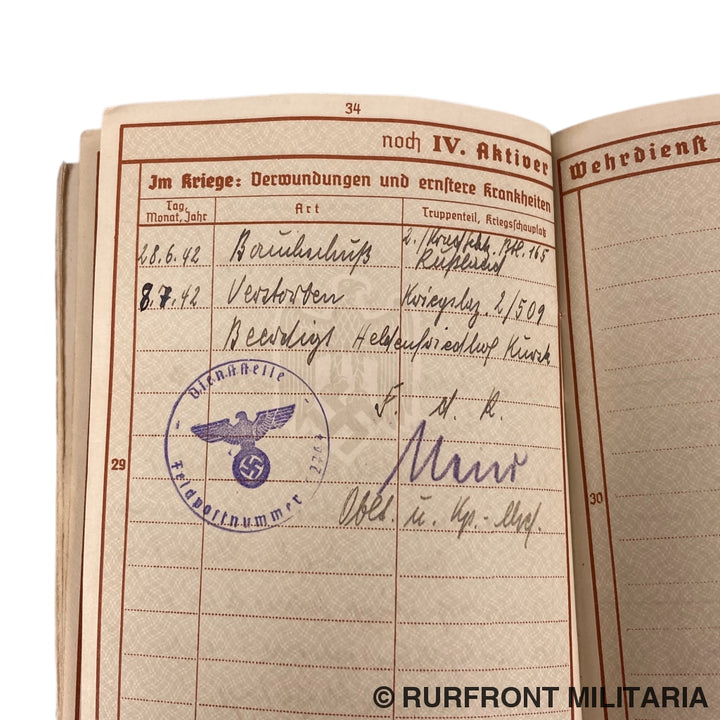 34
noch IV. Aktiver
Wehrdienst
Im Kriege: Verwundungen und ernstere Krankheiten
Tag, Monat, Jahr
Art
Truppenteil, Kriegsschauplatz
28.6.42 Bauchschuß 2./ Btl. 165
Rußland
8.7.42 Verstorben Kriegslaz. 2/509
Beerdigt Heldenfriedhof Kursk
F. d. R.
Oblt. u. Kp.-Chef.
Dienststelle
Feldpostnummer
29
30
© RURFRONT MILITARIA